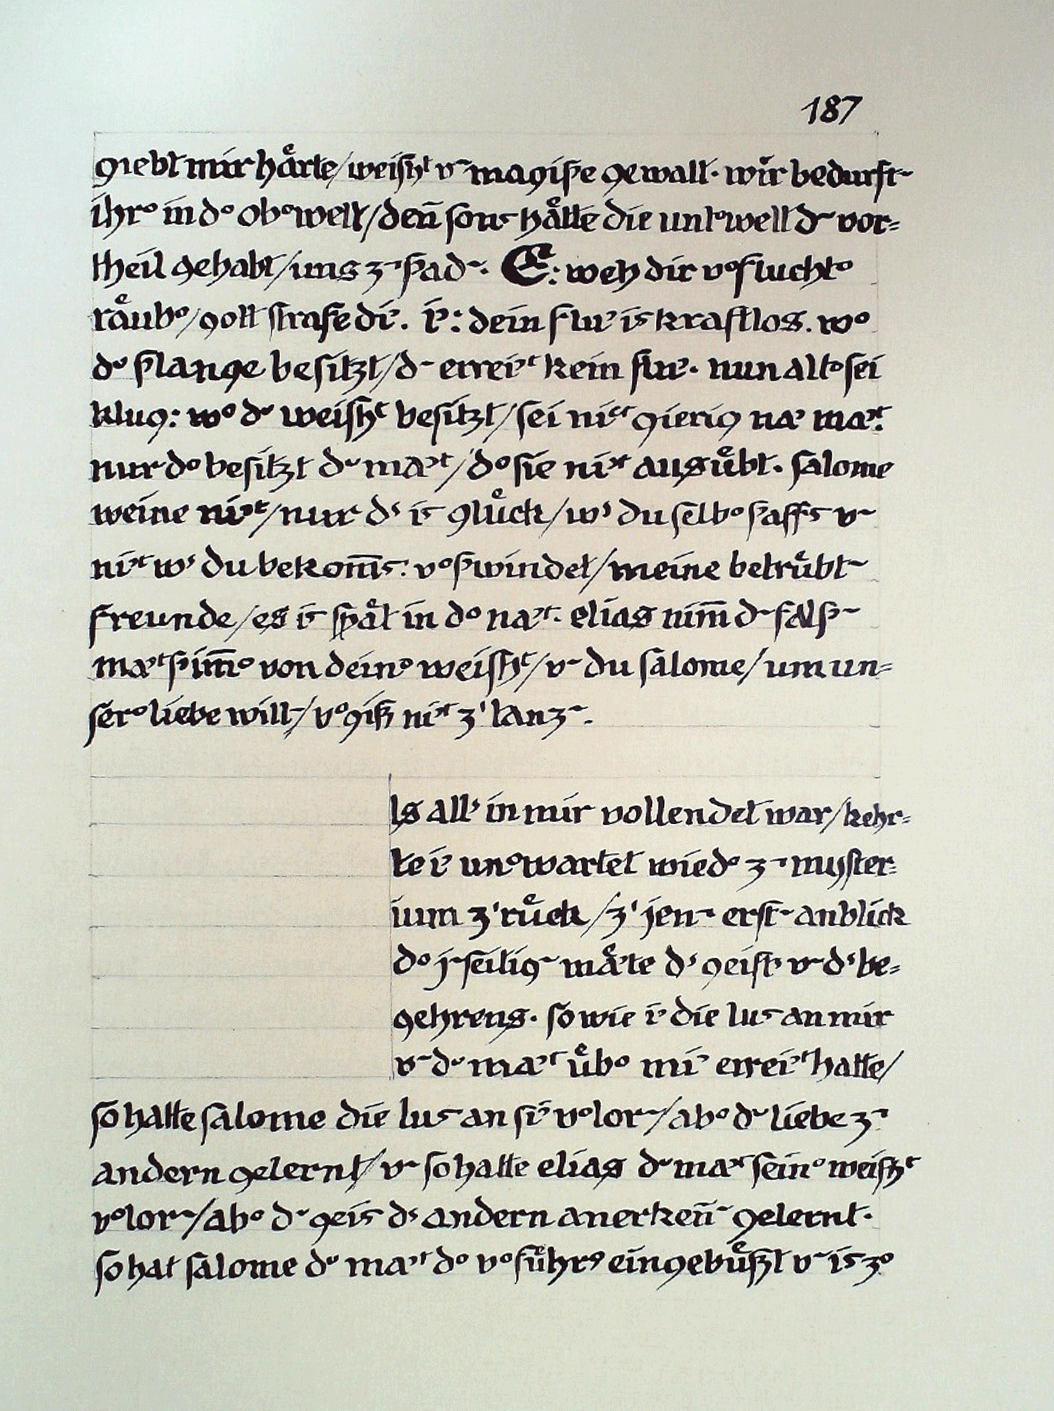 187
giebt mir hårte/weish't v~ magisꝑe gewalt. wir bedurft~
ihr° in d° ob°welt/deñ sonst håtte die unt°welt d~ vor=
theil gehabt/uns z~ sꝑad~. E: weh dir v°flucht°
råub°/gott strafe dī. ī: dein fluc̄ ist kraftlos. w°
d° sꝑlange besitzt/d~ erreiꝯt kein fluc̄. nun alt° sei
klug: w° d~ weish't besitzt/sei niꝯt gierig nac̄ maꝯt:
nur d° besitzt d~ maꝯt/d° sie niꝯt ausůbt. salome
weine niꝯt/nur d' ist glůck/w' du selb° sꝑaffst v~
niꝯt w' du bekom̄st. v°sꝑwindet/meine betrůbt~
freunde/es ist spåt in d° naꝯt. elias nim̄ d~ falsꝑ~
maꝯtsꝑim̄° von dein° weish't/v~ du salome/um un=
ser° liebe will~/v°giß niꝯt z' tanz~.
ls all' in mir vollendet war/kehr=
te ī un°wartet wied° z~ myster=
ium z'růck/z' jen~ erst~ anblick
d° j~seitig~ måꝯte d' geist' v~ d' be=
gehrens. so wie ī die lust an mir
v~ d~ maꝯt ůb° mī erreiꝯt hatte/
so hatte salome die lust an sī v°lor~/ab° d~ liebe z~
andern gelernt/v~ so hatte elias d~ maꝯt sein° weish't
v°lor~/ab° d~ geist d' andern anerkeñ~ gelernt.
so hat salome d~ maꝯt d° v°führg eingebůßt v~ ist z°